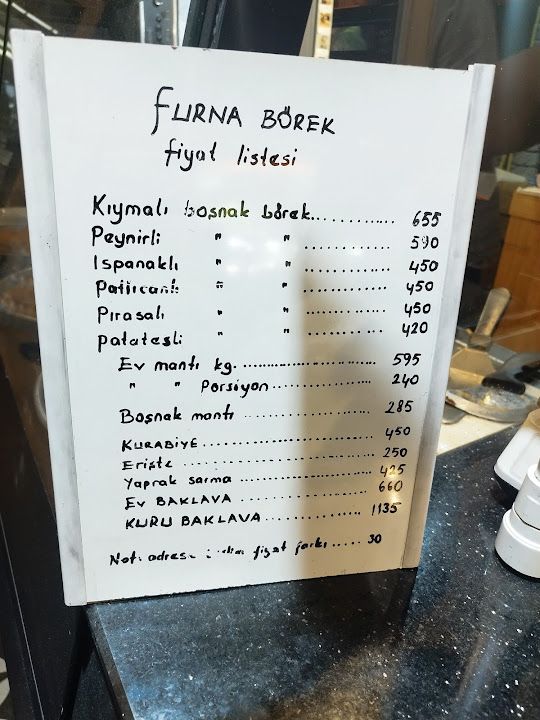 FURNA BÖREK
fiyat listesi
Kıymalı boşnak börek............... 655
Peynirli " " ............... 590
Ispanaklı " " ............... 450
Patlıcanlı " " ............... 450
Pırasalı " " ............... 450
patatesli " " ............... 420
Ev mantı kg. ............... 595
" " Porsiyon ............... 240
Boşnak mantı ............... 285
KURABİYE ............... 450
Erişte ............... 250
Yaprak sarma ............... 425
EV BAKLAVA ............... 660
KURU BAKLAVA ............... 1135
Not: adrese fiyat farkı ..... 30